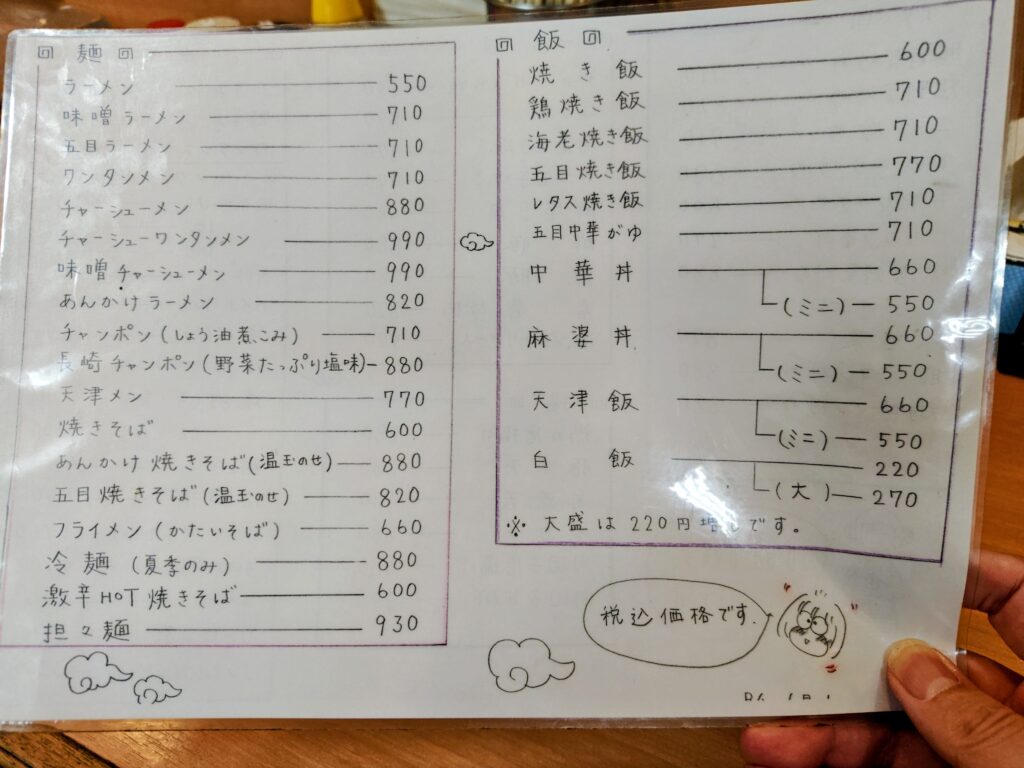 麺
ラーメン 550
味噌ラーメン 710
五目ラーメン 710
ワンタンメン 710
チャーシューメン 880
チャーシューワンタンメン 990
味噌チャーシューメン 990
あんかけラーメン 820
チャンポン(しょう油煮こみ) 710
長崎チャンポン(野菜たっぷり塩味) 880
天津メン 770
焼きそば 600
あんかけ焼きそば(温玉のせ) 880
五目焼きそば(温玉のせ) 820
フライメン(かたいそば) 660
冷麺(夏季のみ) 880
激辛HOT焼きそば 600
担々麺 930
飯
焼き飯 600
鶏焼き飯 710
海老焼き飯 710
五目焼き飯 770
レタス焼き飯 710
五目中華がゆ 710
中華丼 660
(ミニ) 550
麻婆丼 660
(ミニ) 550
天津飯 660
(ミニ) 550
白飯 220
(大) 270
※大盛は220円増しです。
税込価格です.